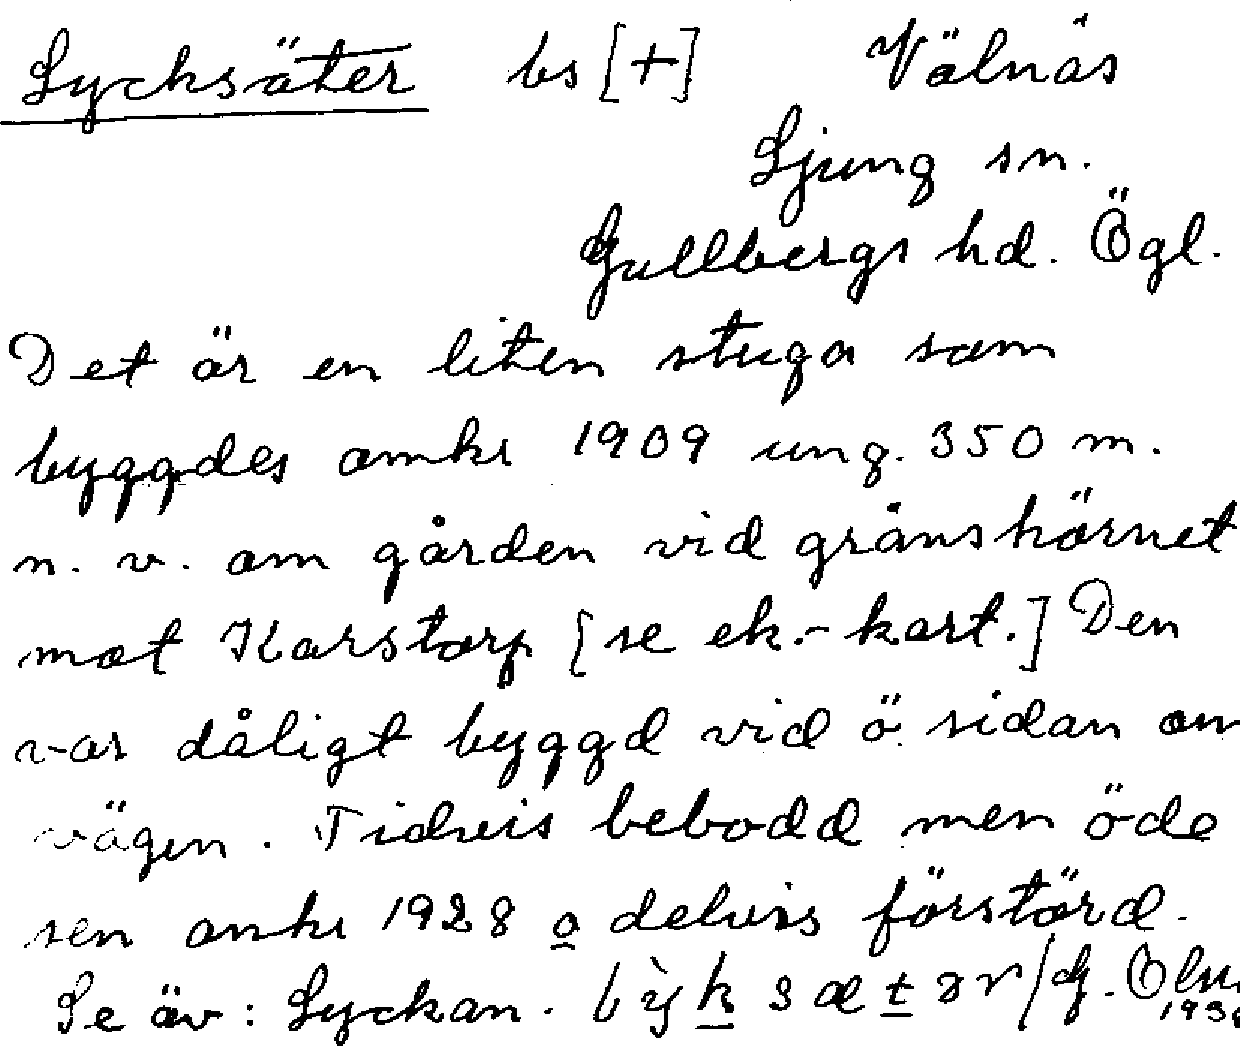 Lycksäter bs [+] Välnäs
Ljung sn.
Gullbergs hd. Ögl.
Det är en liten stuga som
byggdes omkr 1909 ung. 350 m.
n. v. om gården vid gränshörnet
mot Karstorp [se ek.-kart.] Den
var dåligt byggd vid ö. sidan om
vägen. Tidvis bebodd men öde
sen omkr 1928 o delvis förstörd.
Se äv: Lyckan.